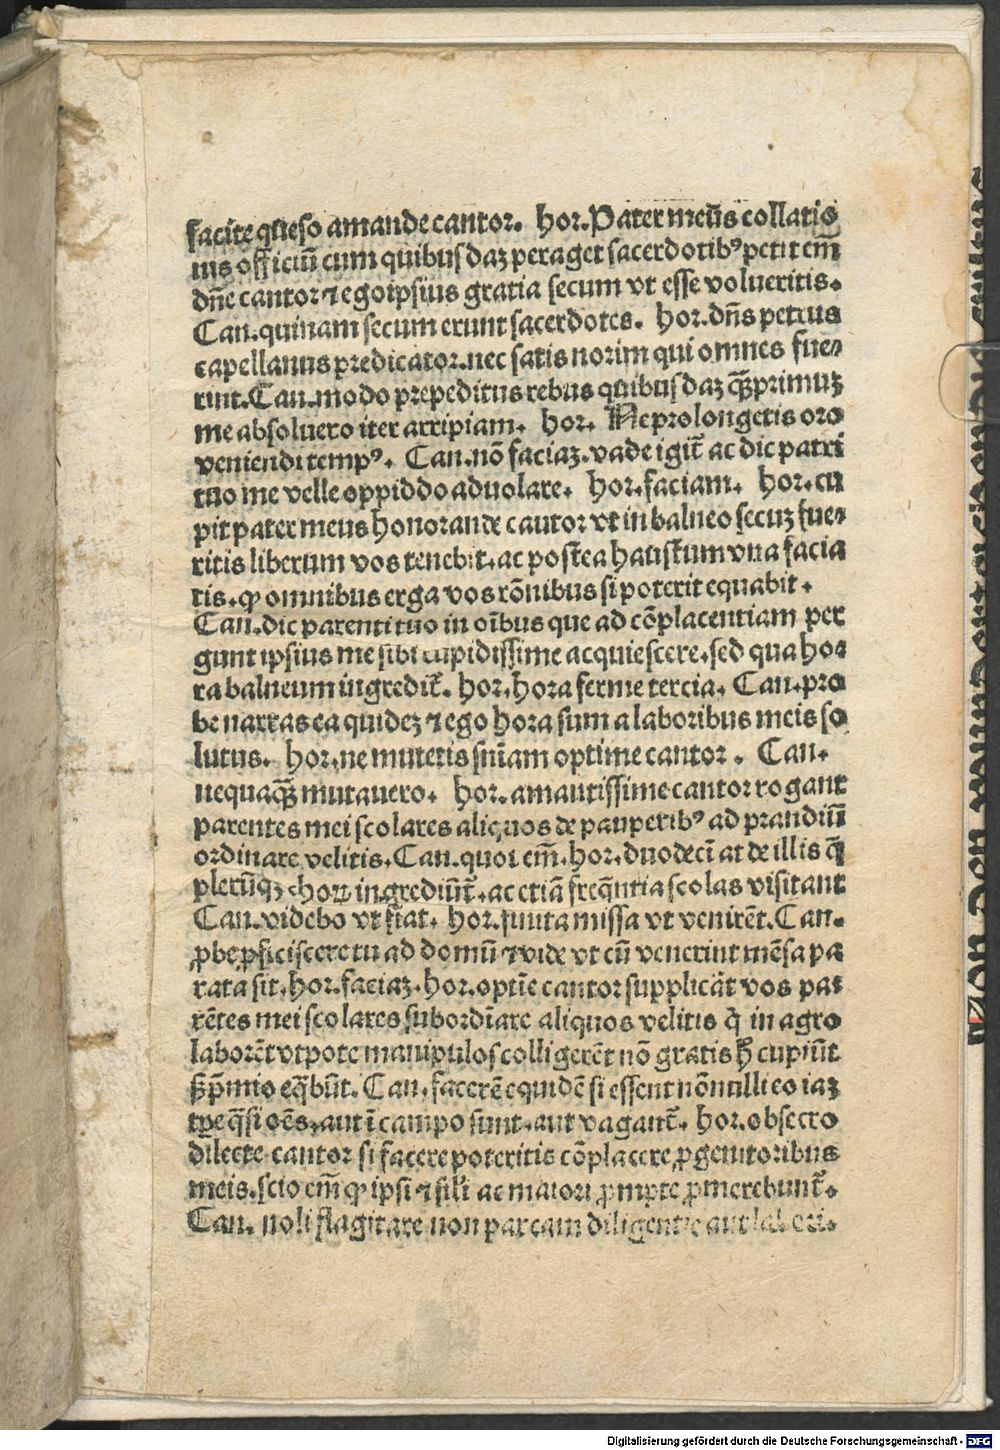 facite q̄ueso amande cantor. hor. Pater meūs collatis
nis officiū cum quibusdaz peraget sacerdotibꝰ petit em̄
dn̄e cantor ⁊ ego ipsius gratia secum vt esse volueritis.
Can. quinam secum erunt sacerdotes. hor. dn̄s petrus
capellanus predicator. nec satis norim qui omnes fue⸗
rint. Can. modo prepeditus rebus quibusdaz q̄ꝫprimuꝫ
me absoluero iter arripiam. hor. Ne prolongetis oro
veniendi tempꝰ. Can. nō faciaꝫ. vade igit̄ ac dic patri
tuo me velle oppiddo aduolare. hor. faciam. hor. cu
pit pater meus honorande cantor vt in balneo secuꝫ fue⸗
ritis liberum vos tenebit. ac postea haustum vna facia
tis. ꝙ omnibus erga vos rōnibus si poterit equabit.
Can. dic parenti tuo in oībus que ad cōplacentiam per
gunt ipsius me sibi cupidissime acquiescere. sed qua ho⸗
ra balneum ingredit̄. hor. hora ferme tercia. Can. pro
be narras ea quideꝫ ⁊ ego hora sum a laboribus meis so
lutus. hor. ne mutetis sn̄iam optime cantor. Can.
nequaq̄ꝫ mutauero. hor. amantissime cantor rogant
parentes mei scolares aliquos de pauperibꝰ ad prandiū
ordinare velitis. Can. quot em̄. hor. duodecī at de illis q̄
plerūqꝫ chorꝫ ingrediūt̄. ac etiā freq̄ntia scolas visitant
Can. videbo vt fiat. hor. finita missa vt venirēt. Can.
ꝓbe ꝓficiscere tu ad domū ⁊ vide vt cū venerint mēsa pa
rata sit. hor. faciaꝫ. hor. optīe cantor supplicāt vos pa⸗
rētes mei scolares subordīare aliquos velitis q̄ in agro
laborēt vtpote manipulos colligerēt nō gratis h̄ cupiūt
sꝫ p̄mio eq̄būt. Can. facerē equidē si essent nōnulli eo iaꝫ
tpe q̄si oēs, aut ī campo sunt. aut vagant̄. hor. obsecro
dilecte cantor si facere poteritis cōplacere ꝓgenitoribus
meis. scio em̄ ꝙ ipsi ⁊ sīli ac maiori ꝓmpte ꝓmerebunt̄.
Can. noli flagitare non parcam diligentie aut labori.
Digitalisierung gefördert durch die Deutsche Forschungsgemeinschaft - DFG